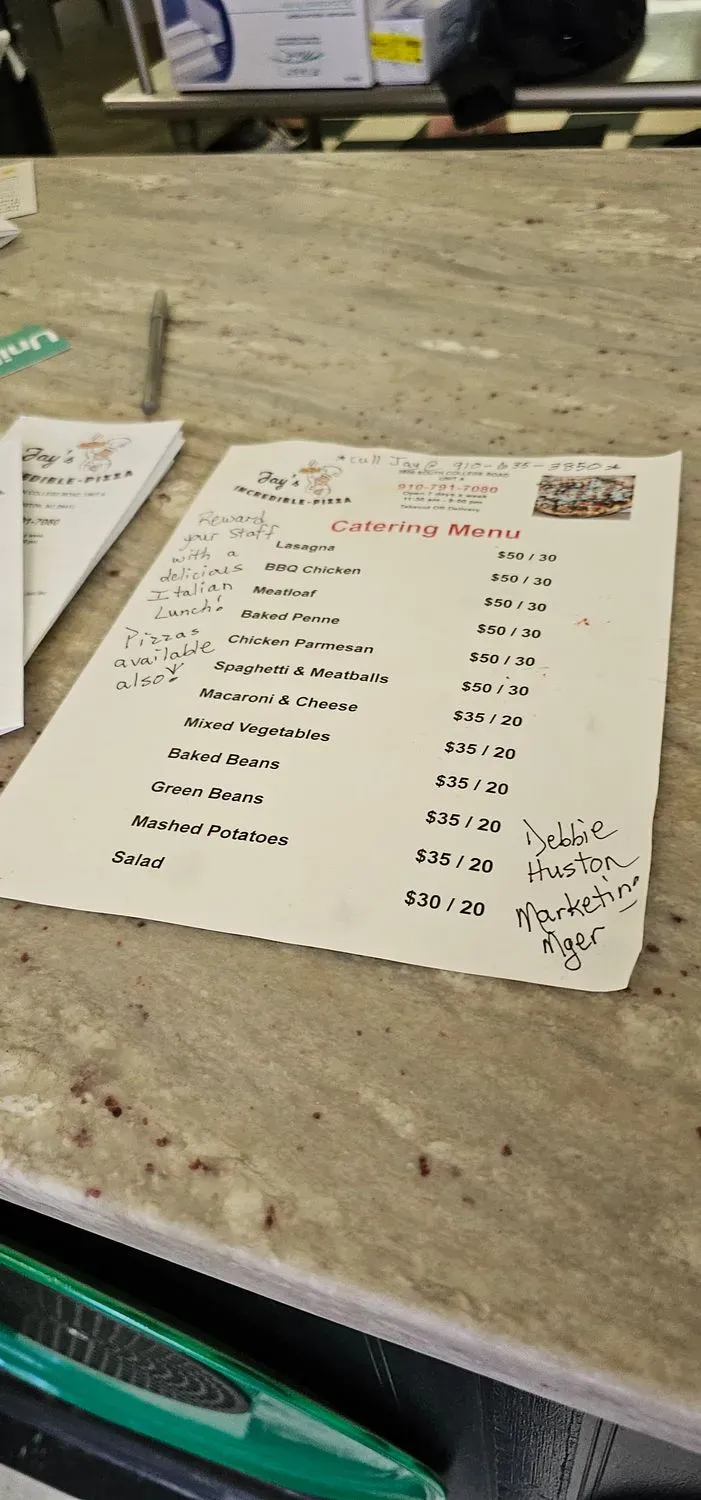 *Call Jay @ 910-635-3850*
Jay's
INCREDIBLE-PIZZA
SOUTH COLLEGE ROAD
UNIT A
910-791-7080
Open 7 days a week
Takeout OR Delivery
Catering Menu
Reward
your Staff
with a
delicious
Italian
Lunch!
Pizzas
available
also!
Lasagna $50 / 30
BBQ Chicken $50 / 30
Meatloaf $50 / 30
Baked Penne $50 / 30
Chicken Parmesan $50 / 30
Spaghetti & Meatballs $50 / 30
Macaroni & Cheese $35 / 20
Mixed Vegetables $35 / 20
Baked Beans $35 / 20
Green Beans $35 / 20
Mashed Potatoes $35 / 20
Salad $30 / 20
Debbie
Huston
Marketing
Mger
Jay's
EDIBLE-PIZZA
Uni